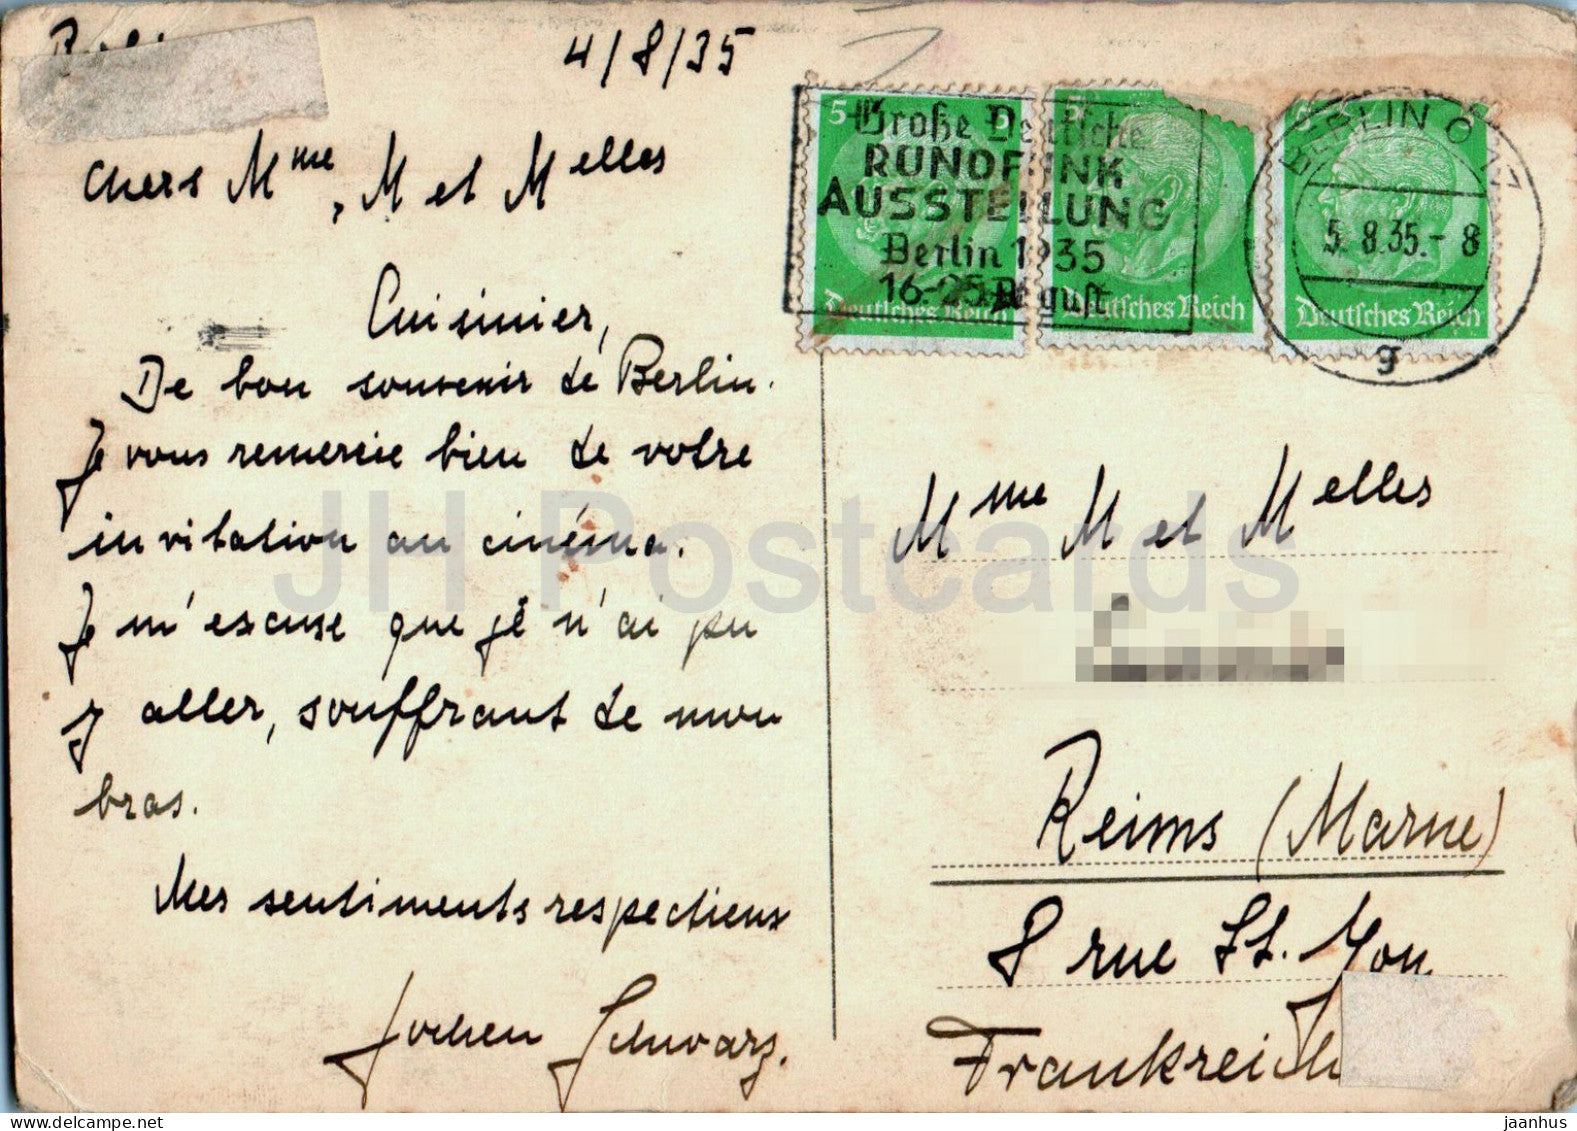 4/8/35
chers Mme, M et Melles
Cuisinier,
De bon souvenir de Berlin.
Je vous remercie bien de votre
invitation au cinéma.
Je m'excuse que je n'ai pu
y aller, souffrant de mon
bras.
Mes sentiments respectieux
Jochen Schwarz.
5 5
Große Deutsche
RUNDFUNK
AUSSTELLUNG
Berlin 1935
16-25 August
Deutsches Reich
5
Deutsches Reich
BERLIN O 17
5.8.35.- 8
g
Deutsches Reich
Mme M et Melles
Reims (Marne)
8 rue St. Yon
Frankreich
JH Postcards
jaanhus